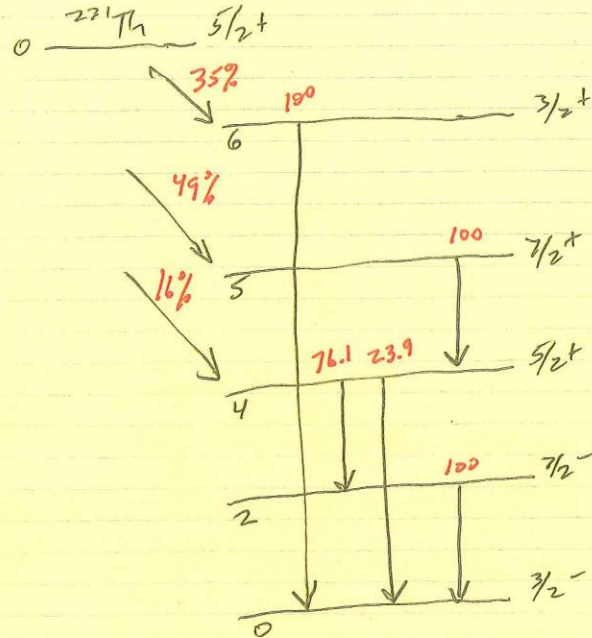 0 ²³¹Th 5/2+
35%
100 3/2+
6
49%
100 7/2+
5
16%
76.1 23.9 5/2+
4
100 7/2-
2
3/2-
0